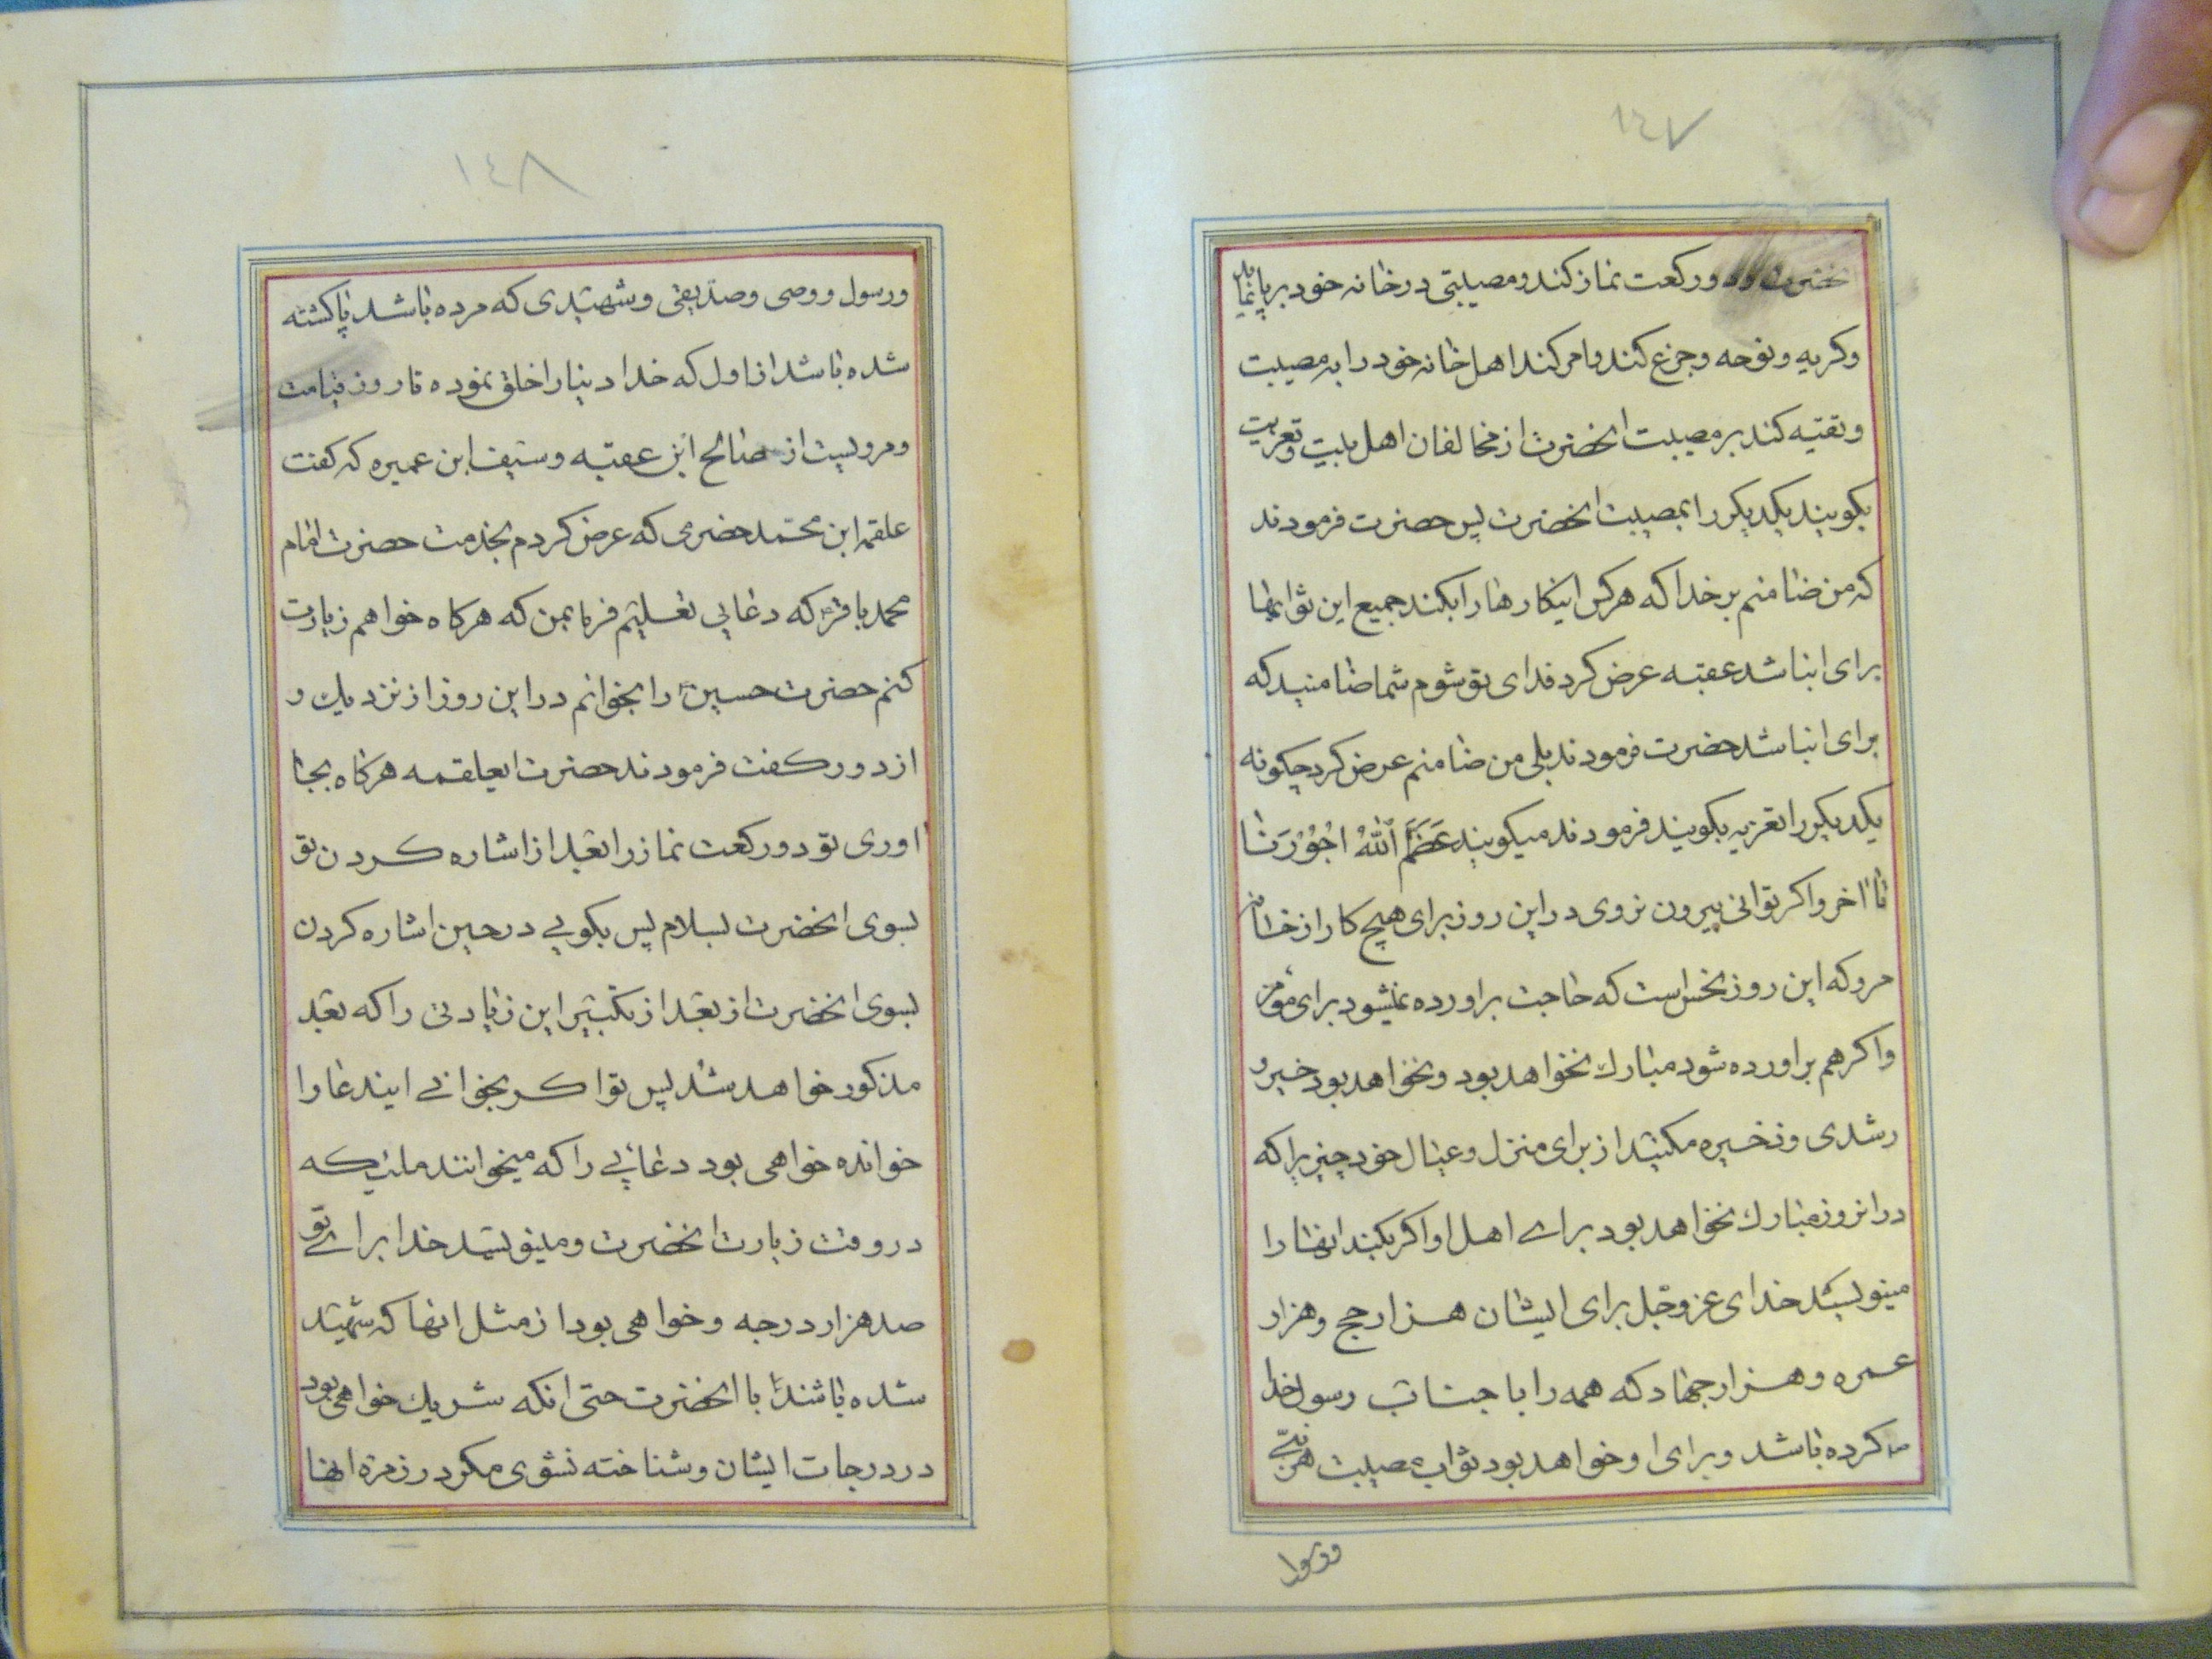 ١٤٧
انحضرت و دو ركعت نماز كند و مصيبتى در خانه خود بر پا نمايد
وكريه ونوحه وجزع كند وامر كند اهل خانه خود را به مصيبت
وتقيه كند بر مصيبت انحضرت از مخالفان اهل بيت وتعزيت
بكويند يكديكر را بمصيبت انحضرت پس حضرت فرمودند
كه من ضامنم بر خدا كه هر كس اينكارها را بكند جميع اين ثوابها
براى انباشد عقبه عرض كرد فداى تو شوم شما ضامنيد كه
براى انباشد حضرت فرمودند بلى من ضامنم عرض كرد چكونه
يكديكر را تعزيه بكويند فرمودند ميكويند عَظَّمَ اَللّٰهُ اُجُوُرَنٰا
تا اخر واكر توانى بيرون نروى در اين روز براى هيچ كار از خانه
مرو كه اين روز نحس است كه حاجت براورده نميشود براى مؤمن
واكر هم براورده شود مبارك نخواهد بود ونخواهد بود خير و
رشدى وذخيره مكنيد از براى منزل وعيال خود چيزيرا كه
در انروز مبارك نخواهد بود براى اهل او اكر بكند انها را
مينويسد خداى عز وجل براى ايشان هزار حج وهزار
عمره وهزار جهاد كه همه را با جناب رسول خدا
ص كرده باشد وبراى او خواهد بود ثواب مصيبت هر نبى
ورسول
١٤٨
ورسول ووصى وصديقى وشهيدى كه مرده باشد يا كشته
شده باشد از اول كه خدا دنيا را خلق نموده تا روز قيامت
ومرويست از صالح ابن عقبه وسيف ابن عميره كه كفت
علقمه ابن محمد حضرمى كه عرض كردم بخدمت حضرت امام
محمد باقر ع كه دعايى تعليم فرما بمن كه هركاه خواهم زيارت
كنم حضرت حسين ع را بخوانم در اين روز از نزديك و
از دور كفت فرمودند حضرت ايعلقمه هركاه بجا
اورى تو دو ركعت نماز را بعد از اشاره كردن تو
بسوى انحضرت بسلام پس بكويى در حين اشاره كردن
بسوى انحضرت از بعد از تكبير اين زيارتى را كه بعد
مذكور خواهد شد پس تو اكر بخوانى ايندعا را
خوانده خواهى بود دعائى را كه ميخوانند ملئكه
در وقت زيارت انحضرت ومينويسد خدا براى تو
صد هزار درجه وخواهى بود از مثل انها كه شهيد
شده باشند با انحضرت حتى انكه شريك خواهى بود
در درجات ايشان وشناخته نشوى مكر در زمره انها